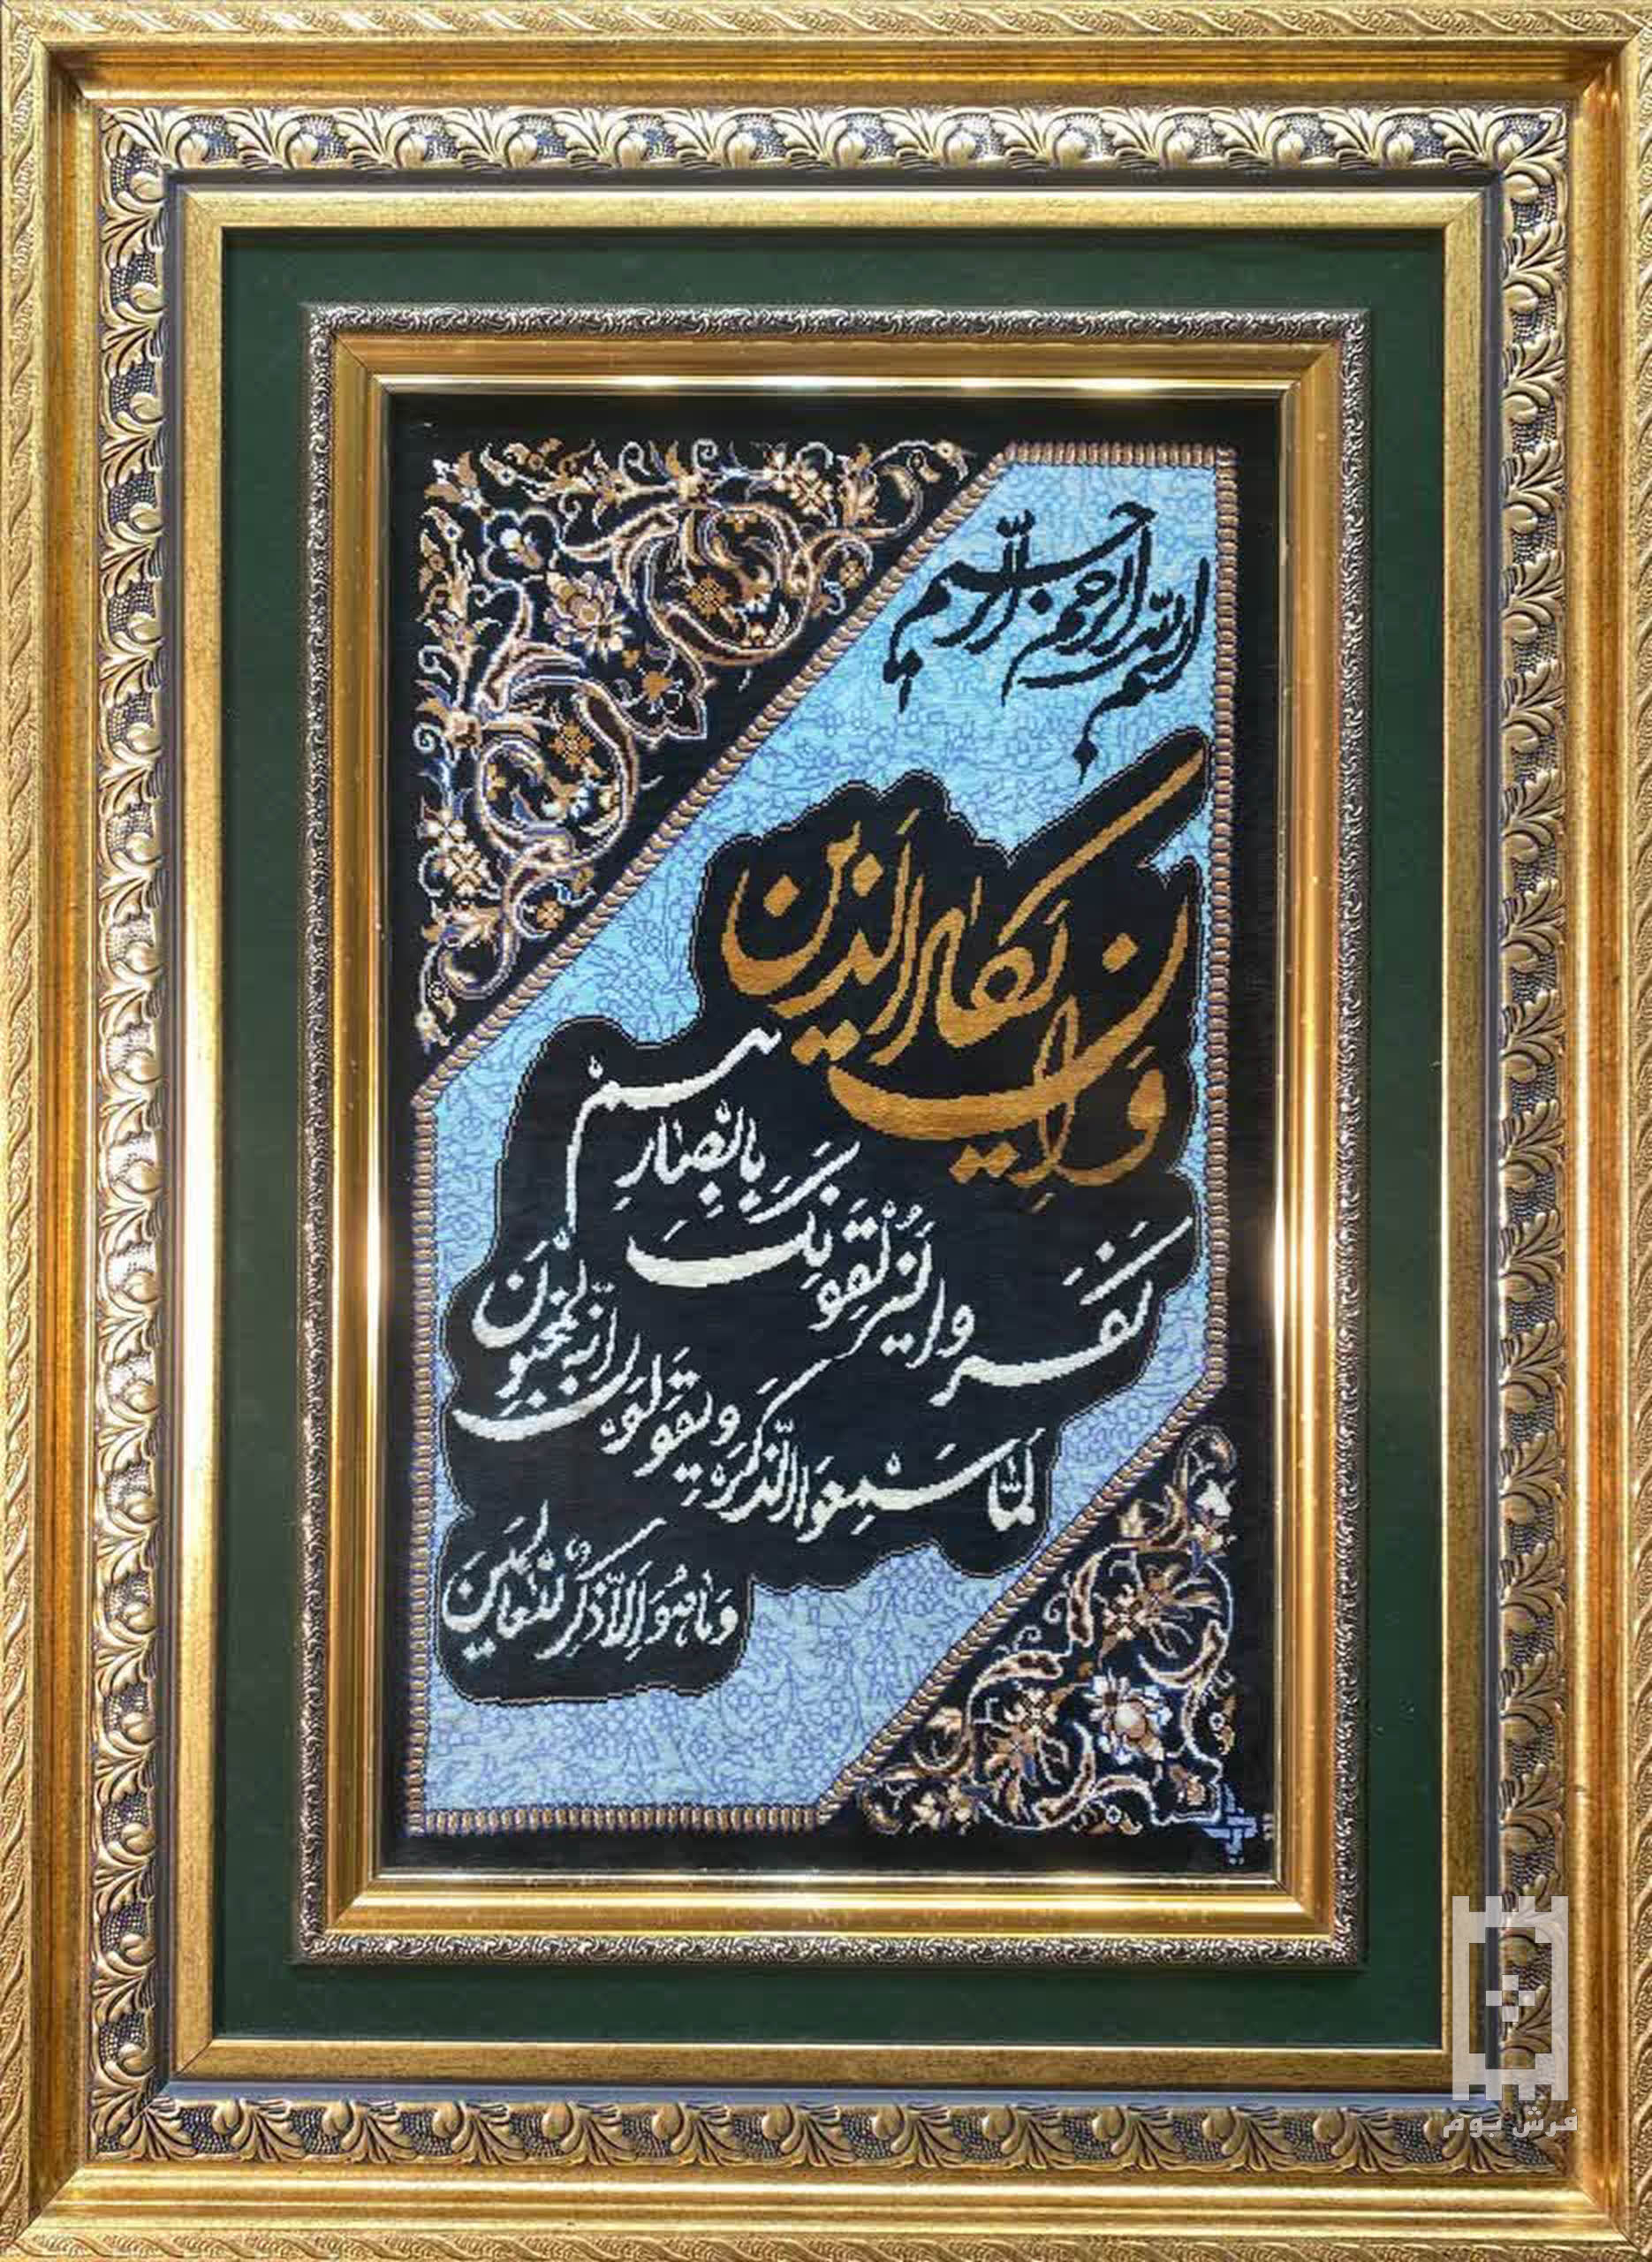 بسم الله الرحمن الرحیم
وَاِن یَکادُ الَّذینَ
کَفَروا لَیُزلِقونَکَ بِاَبصارِهِم
لَمّا سَمِعوا الذِّکرَ وَ یَقولونَ اِنَّهُ لَمَجنون
وَما هُوَ اِلّا ذِکرٌ لِلعالَمینَ
فرش بوم